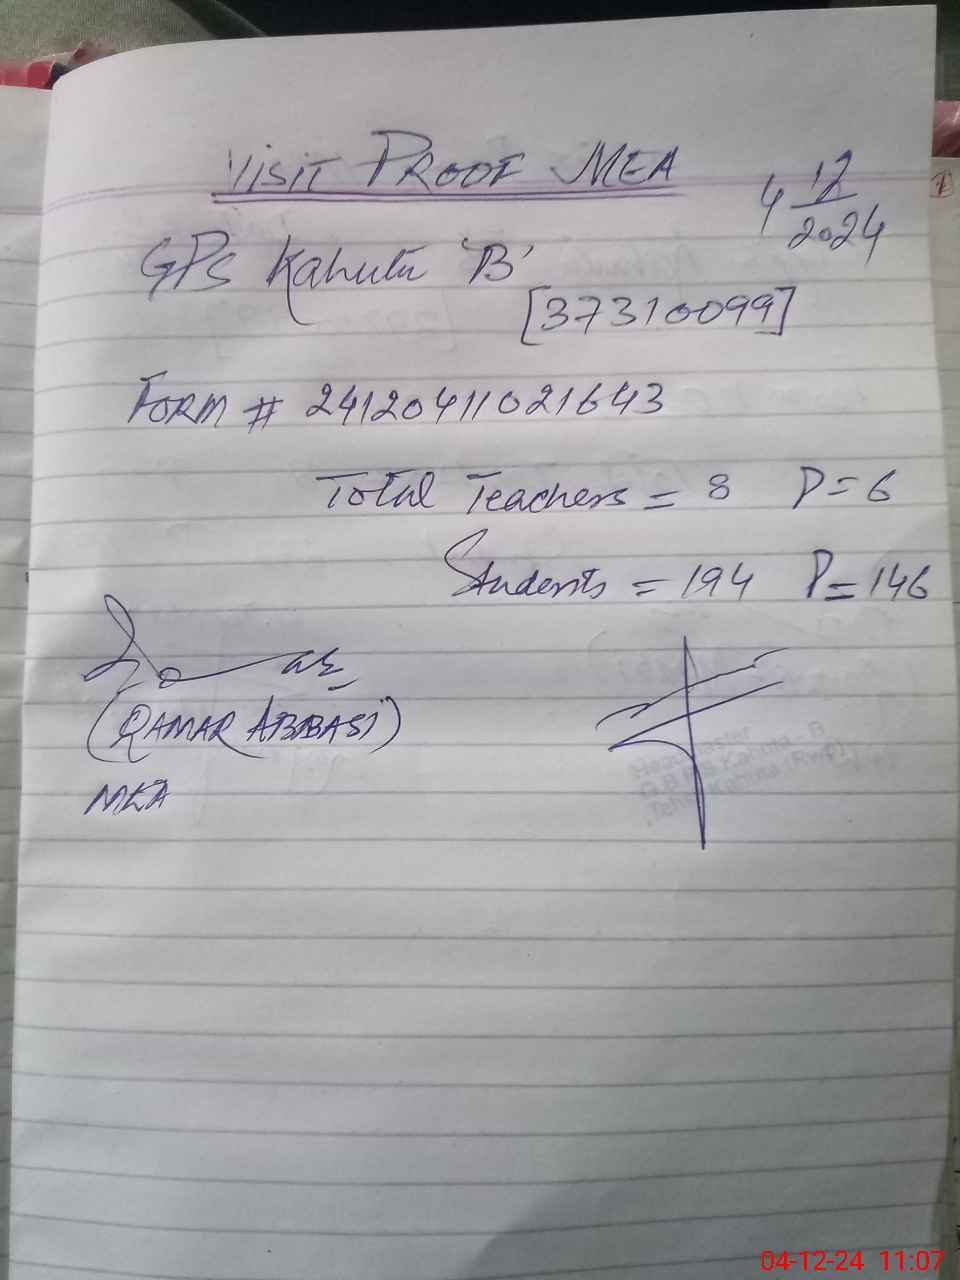 VISIT PROOF MEA
4 12/2024
GPS Kahuta 'B'
[37310099]
FORM # 24120411021643
Total Teachers = 8 P = 6
Students = 194 P = 146
(QAMAR ABBASI)
MEA
Headmaster
Kahuta - B
Kahuta (Rwp)
04-12-24 11:07